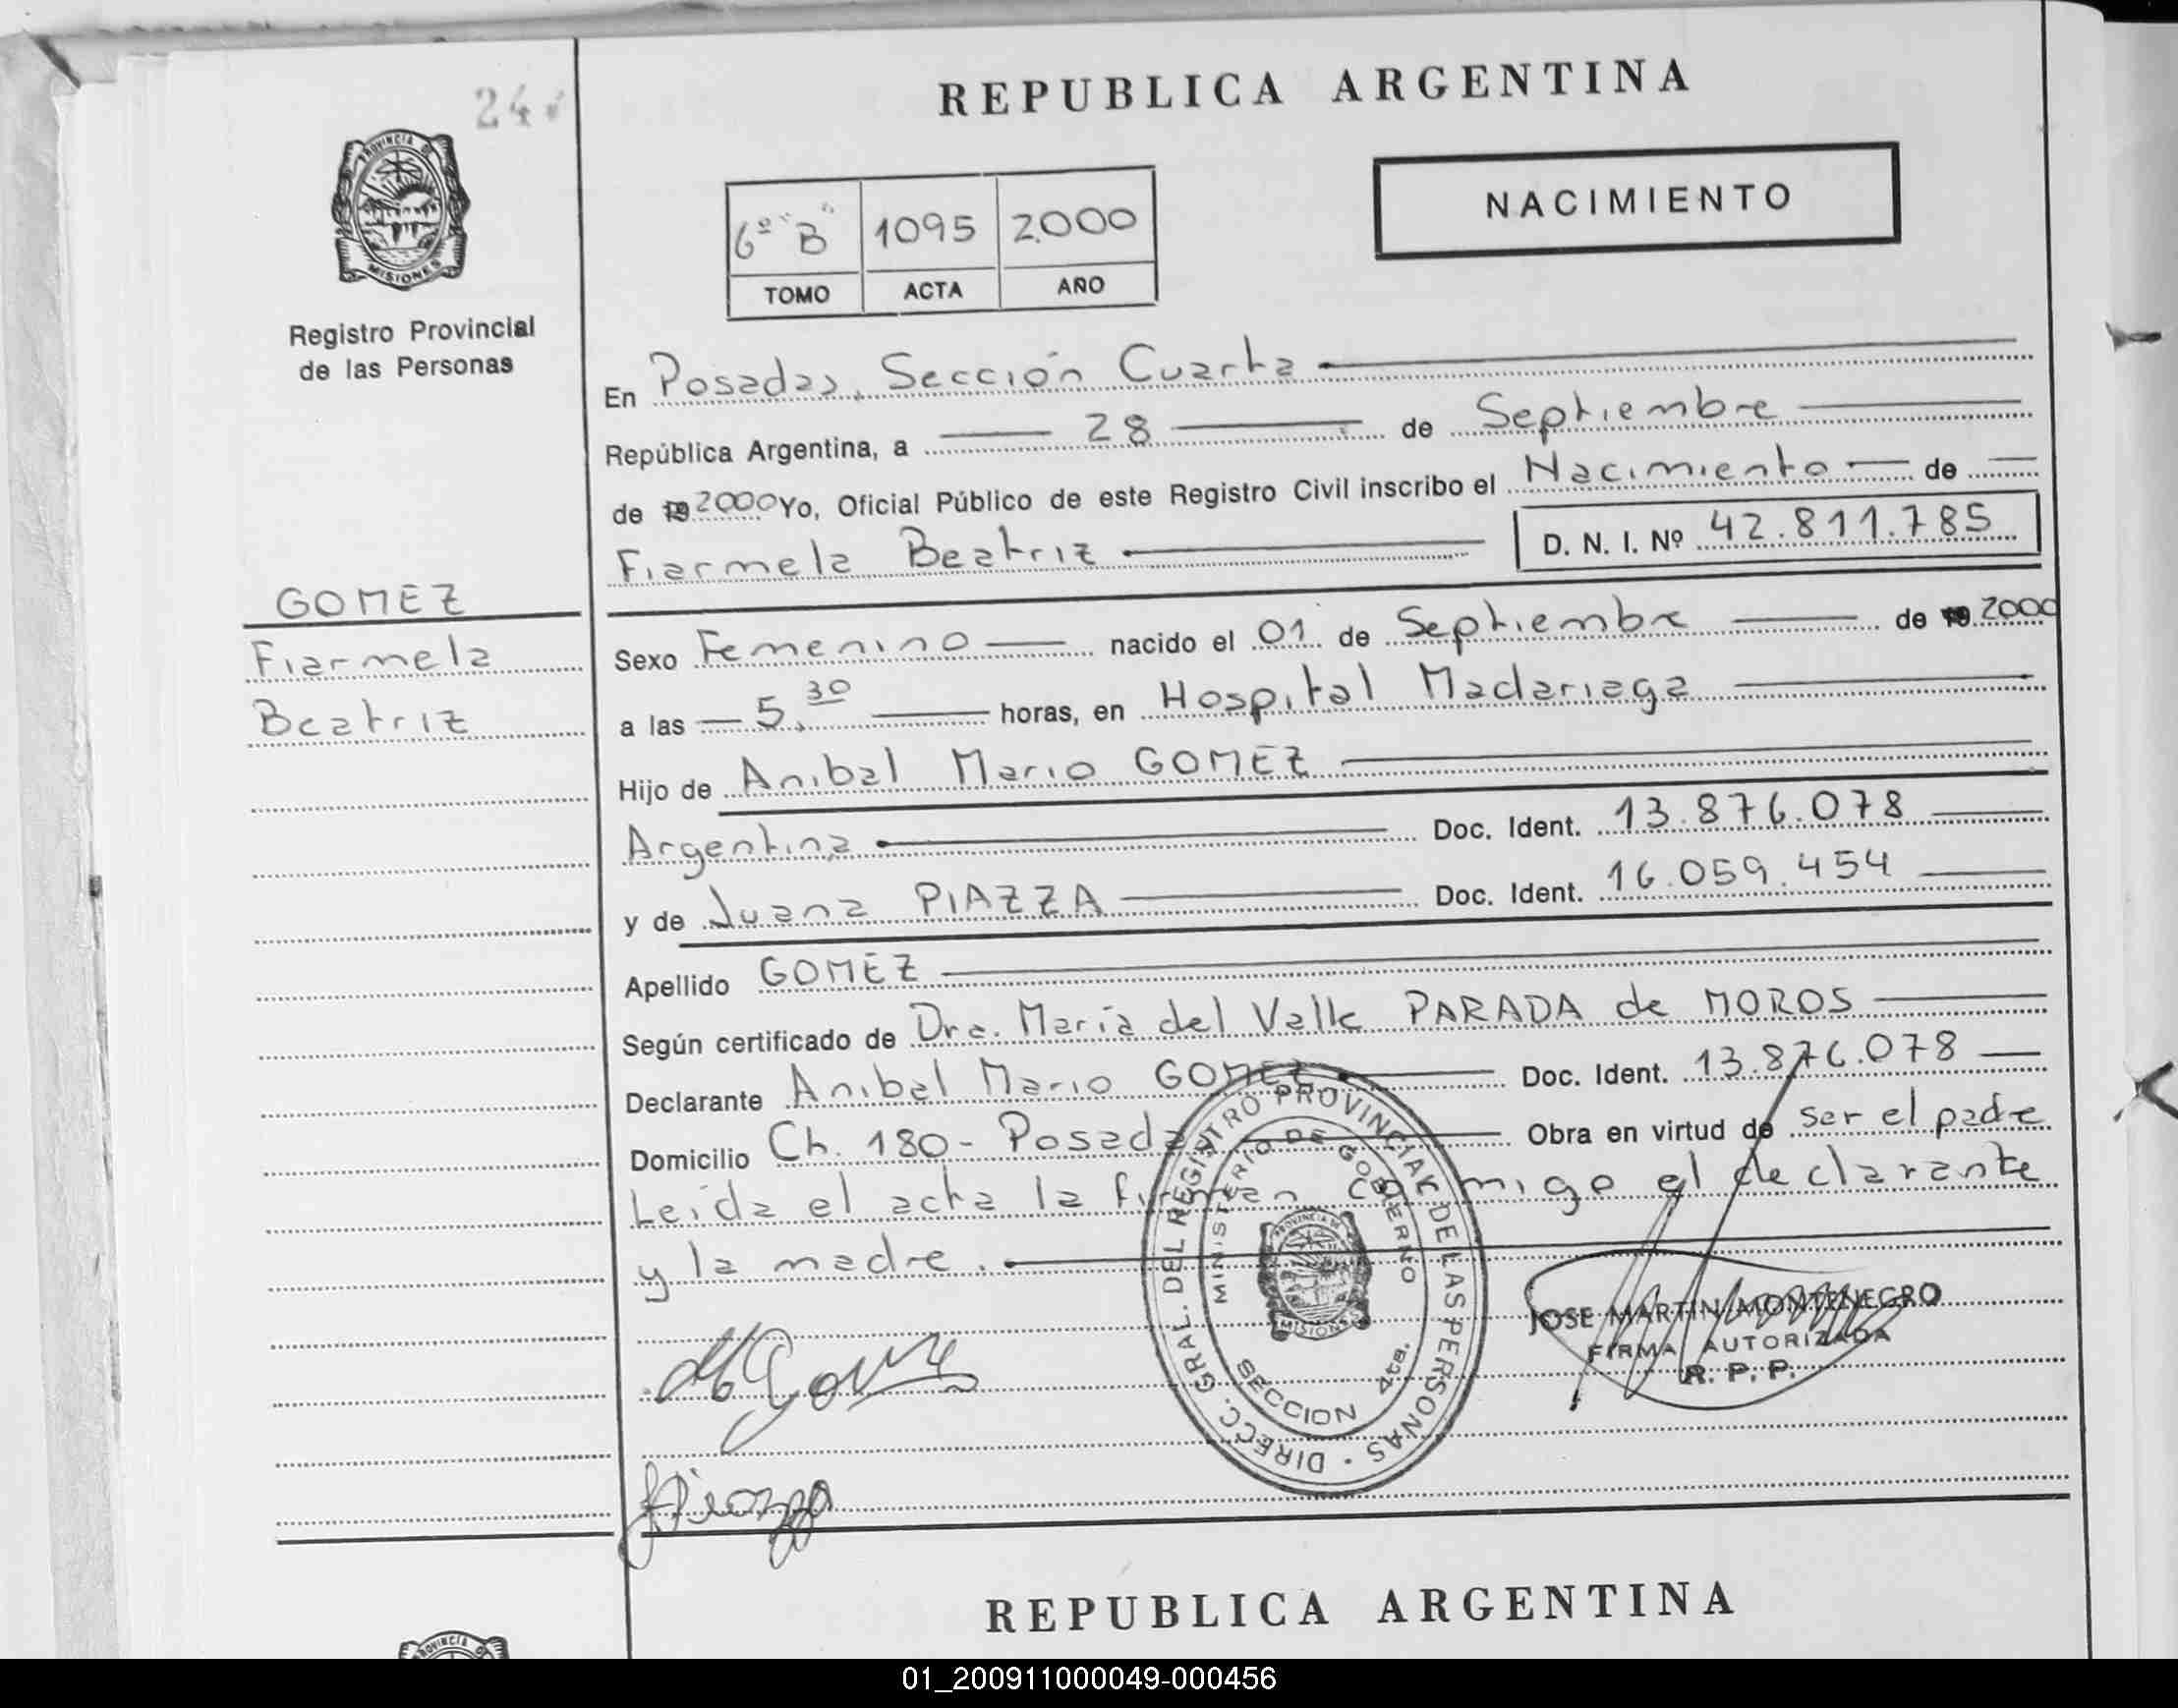 24
PROVINCIA DE
MISIONES
Registro Provincial
de las Personas
GOMEZ
Fiarmela
Beatriz
REPUBLICA ARGENTINA
6º "B" 1095 2000
TOMO ACTA AÑO
NACIMIENTO
En Posadas, Sección Cuarta
República Argentina, a 28 de Septiembre
de 19 2000 Yo, Oficial Público de este Registro Civil inscribo el Nacimiento de
Fiarmela Beatriz D. N. I. Nº 42.811.785
Sexo Femenino nacido el 01 de Septiembre de 19 2000
a las 5,30 horas, en Hospital Madariaga
Hijo de Anibal Mario GOMEZ
Argentina Doc. Ident. 13.876.078
y de Juana PIAZZA Doc. Ident. 16.059.454
Apellido GOMEZ
Según certificado de Dra. María del Valle PARADA de MOROS
Declarante Anibal Mario GOMEZ Doc. Ident. 13.876.078
Domicilio Ch. 180 - Posadas Obra en virtud de ser el padre
Leída el acta la firman conmigo el declarante
y la madre.
DIRECC. GRAL. DEL REGISTRO PROVINCIAL DE LAS PERSONAS
MINISTERIO DE GOBIERNO
PROVINCIA DE
MISIONES
SECCION 4ta.
JOSE MARTIN MONTENEGRO
FIRMA AUTORIZADA
R. P. P.
REPUBLICA ARGENTINA
PROVINCIA
01_200911000049-000456